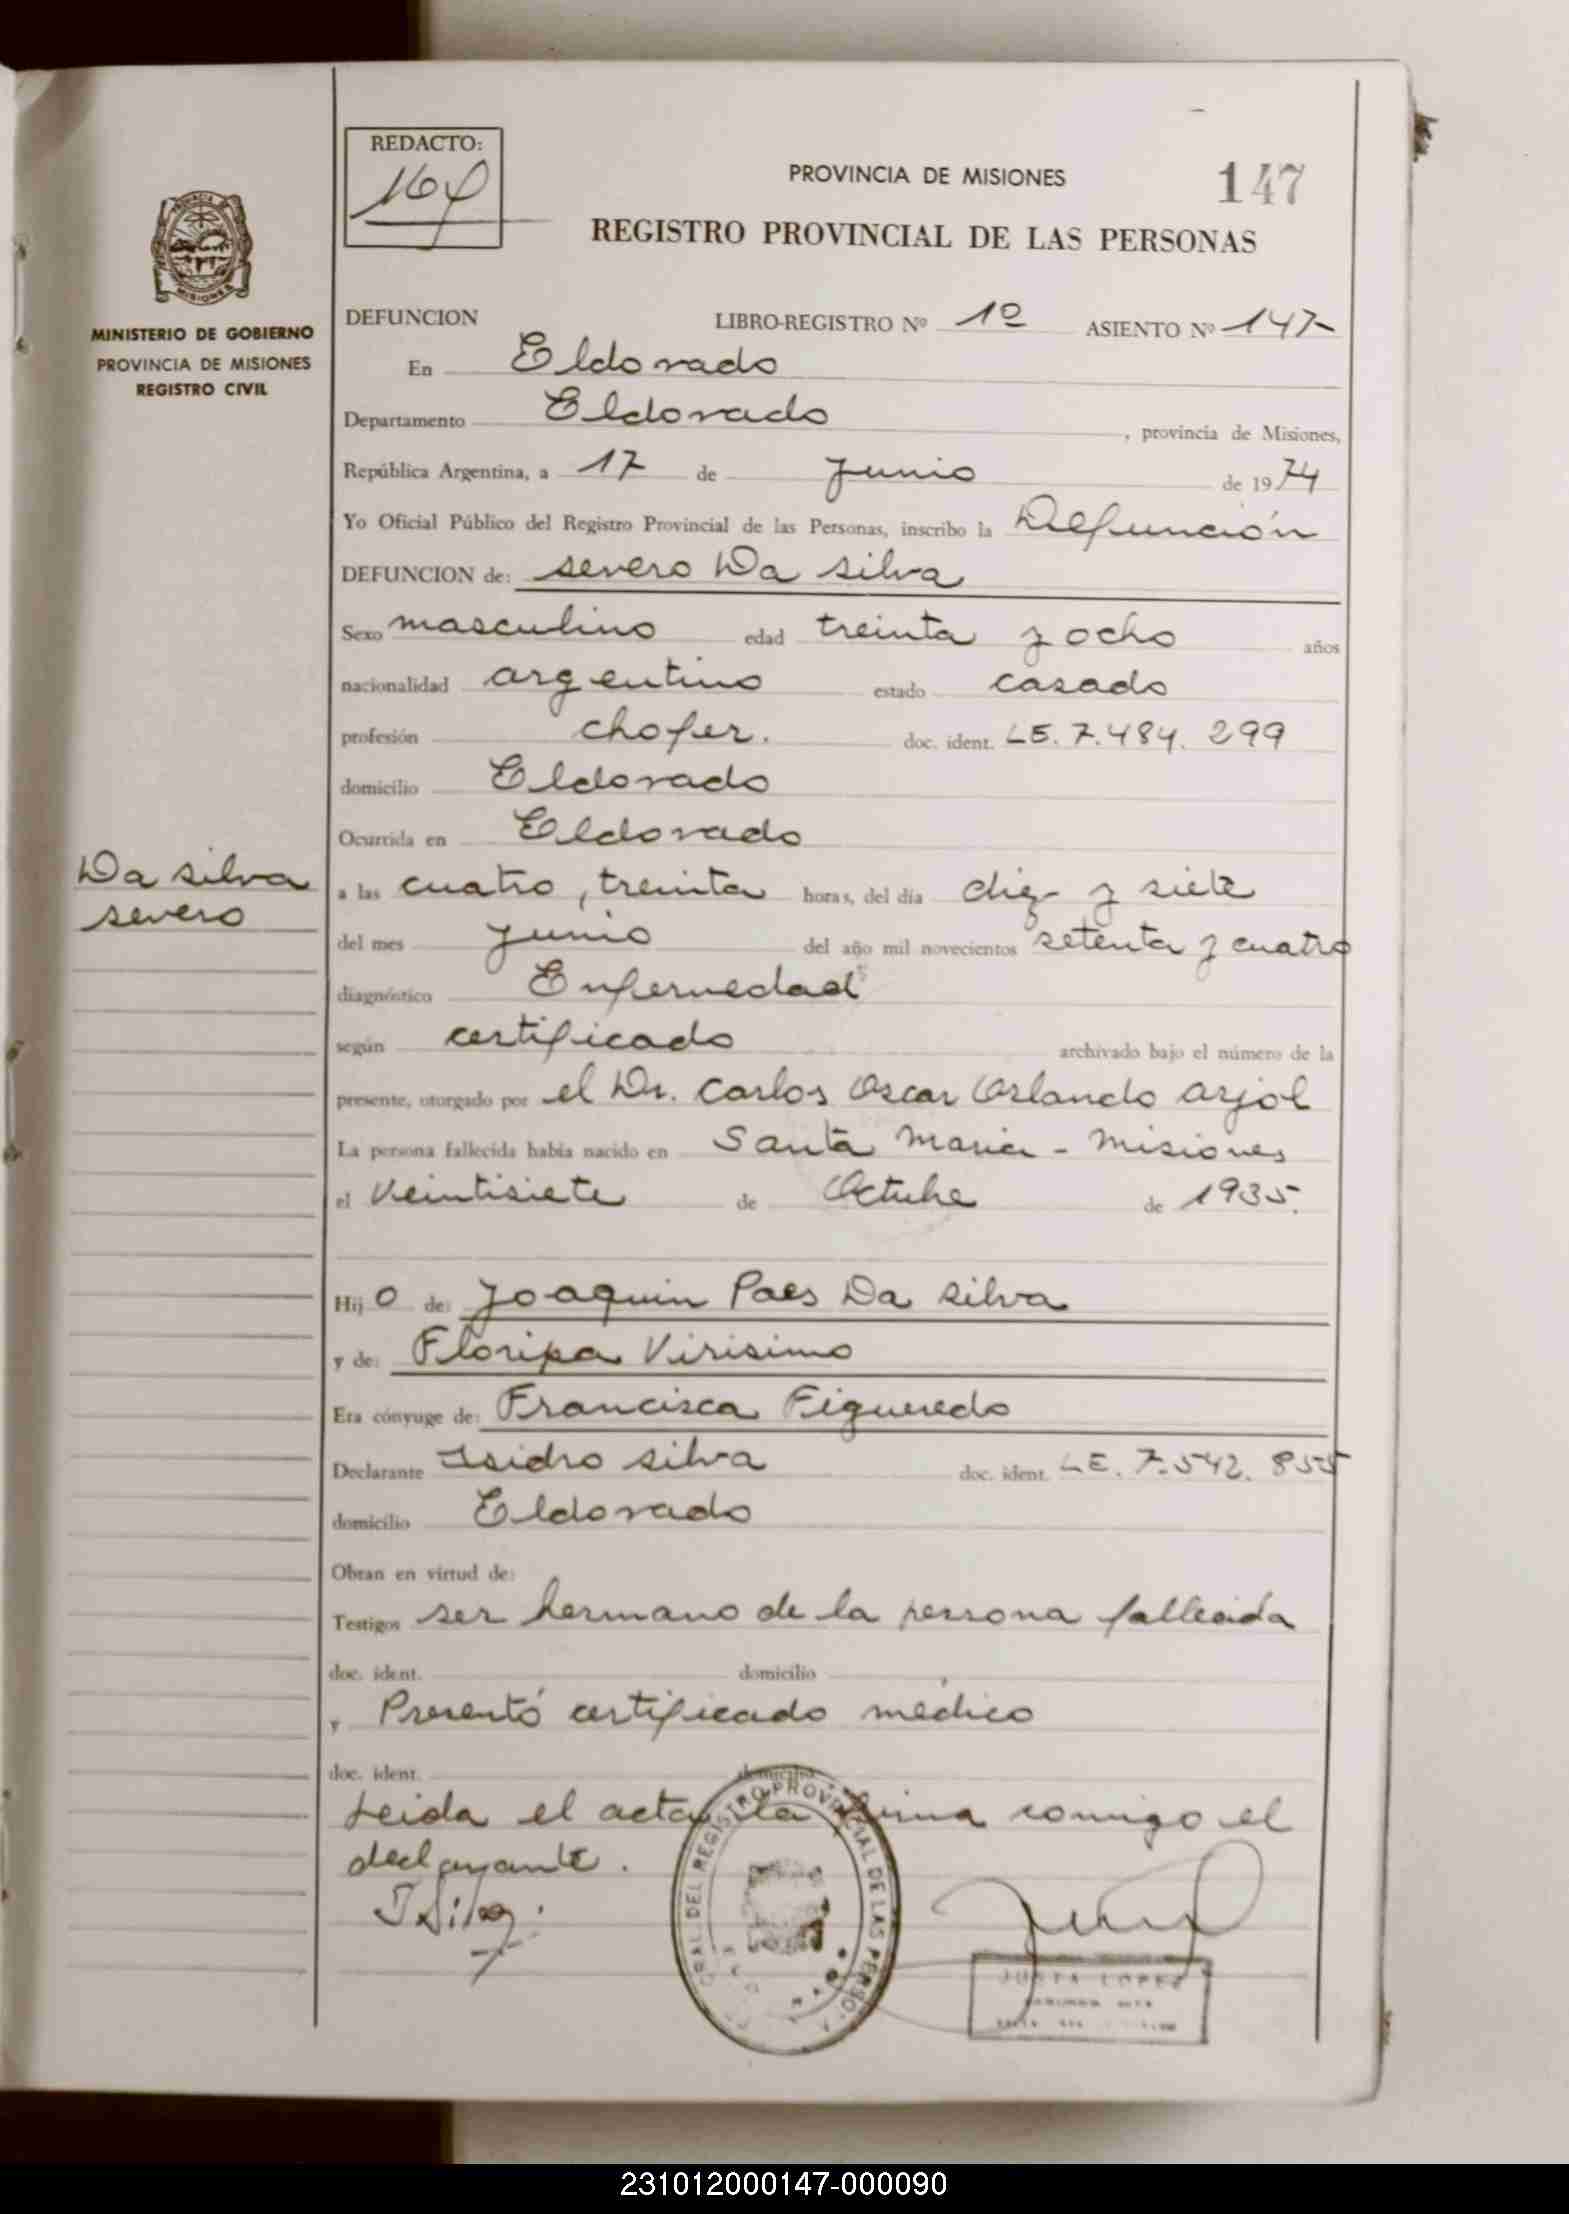 REDACTO:
164
PROVINCIA DE MISIONES
147
REGISTRO PROVINCIAL DE LAS PERSONAS
MISIONES
MINISTERIO DE GOBIERNO
PROVINCIA DE MISIONES
REGISTRO CIVIL
DEFUNCION LIBRO-REGISTRO Nº 1º ASIENTO Nº 147-
En Eldorado
Departamento Eldorado , provincia de Misiones,
República Argentina, a 17 de Junio de 1974
Yo Oficial Público del Registro Provincial de las Personas, inscribo la Defunción
DEFUNCION de: severo Da silva
Sexo masculino edad treinta y ocho años
nacionalidad argentino estado casado
profesión chofer. doc. ident. LE. 7.484. 299
domicilio Eldorado
Ocurrida en Eldorado
Da silva
severo
a las cuatro, treinta horas, del día diez y siete
del mes Junio del año mil novecientos setenta y cuatro
diagnóstico Enfermedad
según certificado archivado bajo el número de la
presente, otorgado por el Dr. Carlos Oscar Orlando Arjol
La persona fallecida había nacido en Santa Maria - Misiones
el Veintisiete de Octubre de 1935.
Hij o de: Joaquin Paes Da silva
y de: Floripa Virisimo
Era cónyuge de: Francisca Figueredo
Declarante Isidro silva doc. ident. LE. 7.542. 855
domicilio Eldorado
Obran en virtud de:
Testigos ser hermano de la persona fallecida
doc. ident. domicilio
y Presentó certificado médico
doc. ident. domicilio
Leida el acta, la firma conmigo el
declarante.
I Silva.
GRAL. DEL REGISTRO PROVINCIAL DE LAS PERSO
JUSTA LOPEZ
231012000147-000090